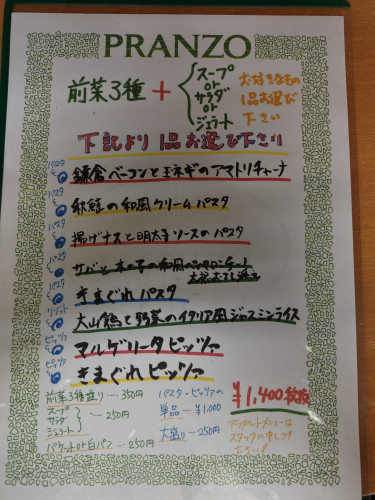 PRANZO
前菜3種 + スープ or サラダ or ジェラート
お好きなもの
1品お選び
下さい
下記より 1品お選び下さい
パスタ 鎌倉ベーコンと玉ネギのアマトリチャーナ
パスタ 秋鮭の和風クリームパスタ
パスタ 揚げナスと明太子ソースのパスタ
パスタ サバと木の子の和風ペペロンチーノ
パスタ きまぐれパスタ
リゾット 大山鶏と野菜のイタリア風ジャスミンライス
ピッツァ マルゲリータピッツァ
ピッツァ きまぐれピッツァ
¥1,400税抜
前菜3種盛り…350円
スープ
サラダ
ジェラート
…250円
バケットor白パン…250円
パスタ・ピッツァの
単品…¥1,000
大盛り…250円
スタッフに申しつけ
下さい!!